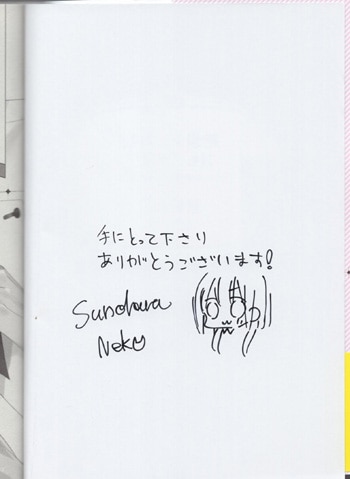 手にとって下さり
ありがとうございます!
Sunohara
Neko